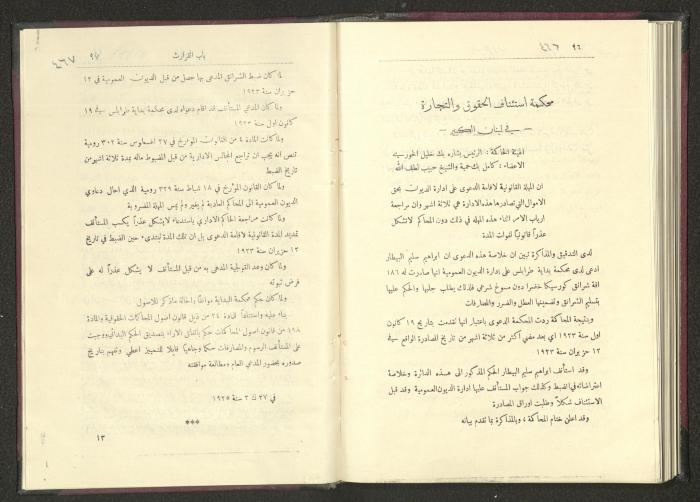 ٩٦
٤٦٦
محكمة استئناف الحقوق والتجارة
– في لبنان الكبير –
الهيئة الحاكمة : الرئيس بشاره بك خليل الخوري
الاعضاء : كامل بك حمية والشيخ حبيب لطف الله
ان المهلة القانونية لاقامة الدعوى على ادارة الديون بحق
الاموال التي تصادرها هذه الادارة هي ثلاثة اشهر وان مراجعة
ارباب الامر اثناء هذه المهلة في ذلك دون المحاكم لا تشكل
عذراً قانونياً لفوات المدة
لدى التدقيق والمذاكرة تبين ان خلاصة هذه الدعوى ان ابراهيم سليم البيطار
ادعى لدى محكمة بداية طرابلس على إدارة الديون العمومية انها صادرت له ١٨٦
اقة شرانق كورسيكا خضرا دون مسوغ شرعي فلذلك يطلب جلبها والحكم عليها
بتسليم الشرانق وتضمينها العطل والضرر والمصارفات
وبنتيجة المحاكمة ردت المحكمة الدعوى باعتبار انها تقدمت بتاريخ ١٩ كانون
اول سنة ١٩٢٣ اي بعد مضي اكثر من ثلاثة اشهر من تاريخ المصادرة الواقع في
١٢ حزيران سنة ١٩٢٣
وقد استأنف ابراهيم سليم البيطار الحكم المذكور الى هذه الدائرة وخلاصة
اعتراضاته في الضبط وكذلك جواب المستأنف عليها ادارة الديون العمومية وقد قبل
الاستئناف شكلاً وطلبت اوراق المصادرة
وقد اعلن ختام المحاكمة ، وبالمذاكرة بما تقدم بيانه
باب القرارات
٤٦٧
لما كان ضبط الشرانق المدعى بها حصل من قبل الديون العمومية في ١٢
حزيران سنة ١٩٢٣
ولما كان المدعي المستأنف قد اقام دعواه لدى محكمة بداية طرابلس في ١٩
كانون اول سنة ١٩٢٣
ولما كانت المادة ٤ من القانون المؤرخ في ٢٧ اغسطوس سنة ٣٠٢ رومية
تنص أنه يجب ان تراجع المجالس الادارية من قبل المضبوط ماله بمدة ثلاثة اشهر من
تاريخ الضبط
ولما كان القانون المؤرخ في ١٨ شباط سنة ٣٢٩ رومية الذي احال دعاوي
الديون العمومية الى المحاكم العادية لم يغير ولم يمس المهلة المضروبة
ولما كانت مراجعة الحاكم الاداري باستدعاء لا يشكل عذراً يكسب المستأنف
تمديد المدة القانونية لاقامة الدعوى بل ان تلك المدة تبتدىء حين الضبط في تاريخ
١٢ حزيران سنة ١٩٢٣
ولما كان وعد التولجية المدعى به من قبل المستأنف لا يشكل عذراً له على
فرض ثبوته
ولما كان حكم محكمة البداية موافقاً والحالة ما ذكر للاصول
بناء عليه واستناداً للمادة ٢٤ من ذيل قانون اصول المحاكمات الحقوقية والمادة
١٩٨ من قانون اصول المحاكمات حكم باتفاق الآراء بتصديق الحكم البدائي ووجبت
على المستأنف الرسوم والمصارفات حكماً وجاهياً قابلا للتمييز اعطي وتفهم بتاريخ
صدوره بحضور المدعي العام ومطالعة موافقته
في ٢٧ ك ٢ سنة ١٩٢٥
***
١٣